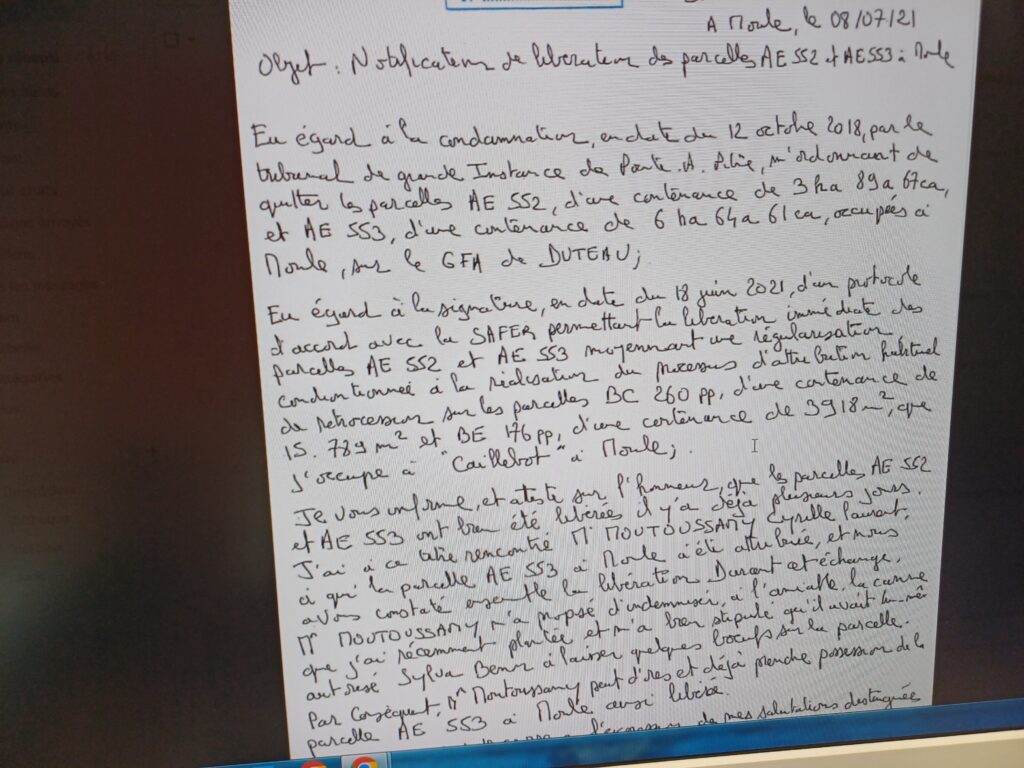 A Moule, le 08/07/21
Objet : Notification de libération des parcelles AE 552 et AE 553 à Moule
Eu égard à la condamnation, en date du 12 octobre 2018, par le
tribunal de grande Instance de Pointe.A.Pitre, m'ordonnant de
quitter les parcelles AE 552, d'une contenance de 3 ha 89 a 67 ca,
et AE 553, d'une contenance de 6 ha 64 a 61 ca, occupées à
Moule, sur le GFA de DUTEAU ;
Eu égard à la signature, en date du 18 juin 2021, d'un protocole
d'accord avec la SAFER permettant la libération immédiate des
parcelles AE 552 et AE 553 moyennant une régularisation
conditionnée à la réalisation du processus d'attribution habituel
de retrocession sur les parcelles BC 260 pp, d'une contenance de
15.789 m² et BE 176 pp, d'une contenance de 3918 m², que
j'occupe à "Caillebot" à Moule ;
Je vous informe, et atteste sur l'honneur, que les parcelles AE 552
et AE 553 ont bien été libérées il y'a déjà plusieurs jours.
J'ai à ce titre rencontré Mr MOUTOUSSAMY Cyrille Laurent,
à qui la parcelle AE 553 à Moule a été attribuée, et nous
avons constaté ensemble la libération. Durant cet échange,
Mr MOUTOUSSAMY m'a proposé d'indemniser, à l'amiable, la canne
que j'ai récemment plantée et m'a bien stipulé qu'il avait lui-même
autorisé Sylva à laisser quelques boeufs sur la parcelle.
Par Conséquent, Mr Moutoussamy peut d'ores et déjà prendre possession de la
parcelle AE 553 à Moule ainsi libérée.
l'expression de mes salutations distinguées